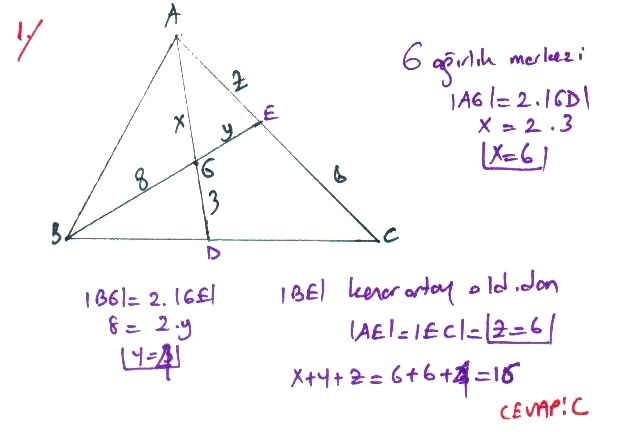 1./
A
z
E
x
y
8
G
6
3
B
D
C
G ağırlık merkezi
|AG|=2.|GD|
x = 2.3
x=6
|BG|=2.|GE|
8= 2.y
y=4
|BE| kenarortay old.dan
|AE|=|EC|= z=6
x+y+z=6+6+4=16
CEVAP:C